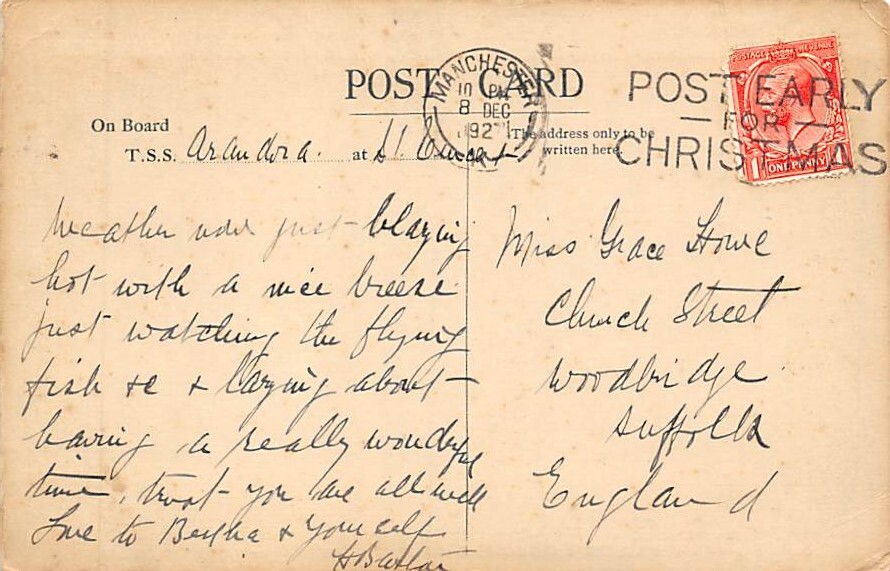 POST CARD
MANCHESTER
10 PM
8 DEC
1927
POST EARLY
FOR
CHRISTMAS
POSTAGE REVENUE
1 ONE PENNY
On Board
T.S.S. Arandora. at St. Vincent
The address only to be
written here.
Weather now just blazing
hot with a nice breeze
just watching the flying
fish &c & lazying about
having a really wonderful
time, trust you are all well
Love to Bertha & yourself
Miss Grace Howe
Church Street
Woodbridge
Suffolk
England